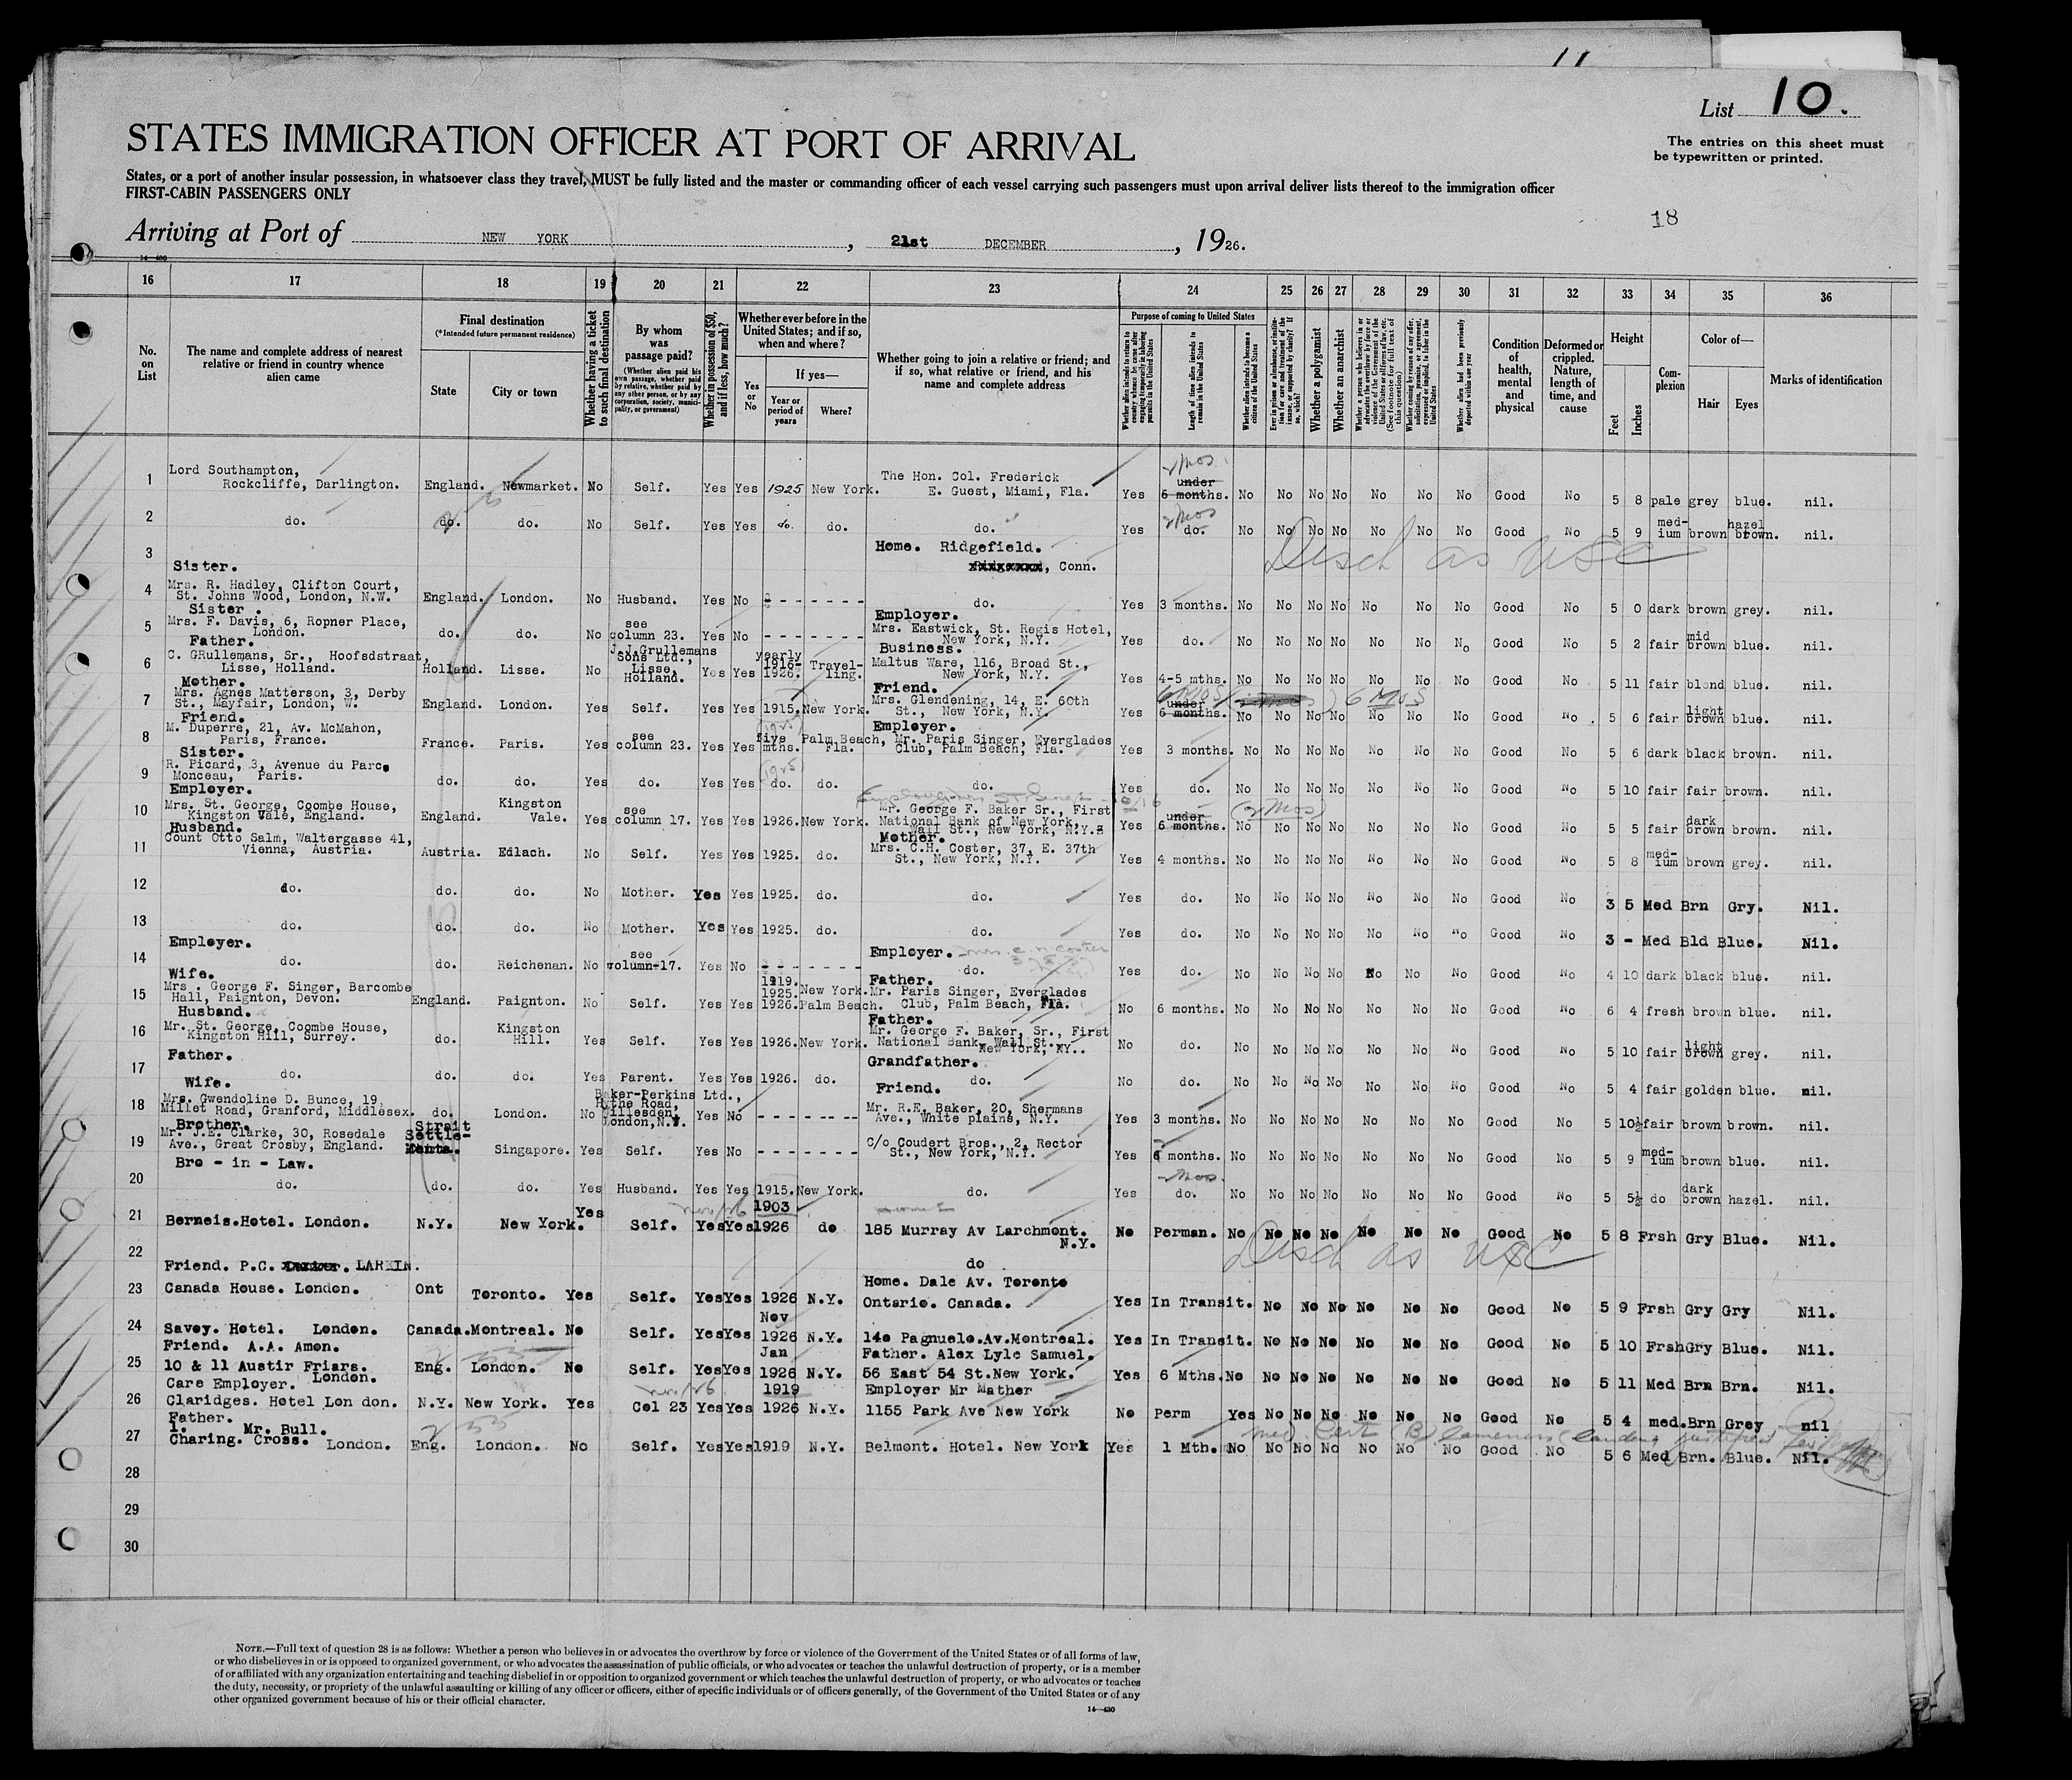 11
List 10.
The entries on this sheet must
be typewritten or printed.
STATES IMMIGRATION OFFICER AT PORT OF ARRIVAL
States, or a port of another insular possession, in whatsoever class they travel, MUST be fully listed and the master or commanding officer of each vessel carrying such passengers must upon arrival deliver lists thereof to the immigration officer
FIRST-CABIN PASSENGERS ONLY
18
Arriving at Port of NEW YORK, 21st DECEMBER, 1926.
14—430
16 17 18 19 20 21 22 23 24 25 26 27 28 29 30 31 32 33 34 35 36
No. on List
The name and complete address of nearest relative or friend in country whence alien came
Final destination (*Intended future permanent residence)
State
City or town
Whether having a ticket to such final destination
By whom was passage paid? (Whether alien paid his own passage, whether paid by relative, whether paid by any other person, or by any corporation, society, municipality, or government)
Whether in possession of $50, and if less, how much?
Whether ever before in the United States; and if so, when and where?
Yes or No
If yes—
Year or period of years
Where?
Whether going to join a relative or friend; and if so, what relative or friend, and his name and complete address
Purpose of coming to United States
Whether alien intends to return to country whence he came after engaging temporarily in laboring pursuits in the United States
Length of time alien intends to remain in the United States
Whether alien intends to become a citizen of the United States
Ever in prison or almshouse, or institution for care and treatment of the insane, or supported by charity? If so, which?
Whether a polygamist
Whether an anarchist
Whether a person who believes in or advocates the overthrow by force or violence of the Government of the United States or all forms of law, etc. (See footnote for full text of this question)
Whether coming by reason of any offer, solicitation, promise, or agreement, expressed or implied, to labor in the United States
Whether alien had been previously deported within one year
Condition of health, mental and physical
Deformed or crippled. Nature, length of time, and cause
Height
Feet
Inches
Complexion
Color of—
Hair
Eyes
Marks of identification
1 Lord Southampton, Rockcliffe, Darlington. England. Newmarket. No Self. Yes Yes 1925 New York. The Hon. Col. Frederick E. Guest, Miami, Fla. Yes 2 mos. under 6 months. No No No No No No No Good No 5 8 pale grey blue. nil.
2 do. do. do. No Self. Yes Yes do. do. do. Yes 2 mos do. No No No No No No No Good No 5 9 med-ium brown hazel brown. nil.
3 Sister. Home. Ridgefield. , Conn. Disch as USC
4 Mrs. R. Hadley, Clifton Court, St. Johns Wood, London, N.W. England. London. No Husband. Yes No - - - - - - - do. Yes 3 months. No No No No No No No Good No 5 0 dark brown grey. nil.
5 Sister . Mrs. F. Davis, 6, Ropner Place, London. do. do. No see column 23. Yes No - - - - - - - Employer. Mrs. Eastwick, St. Regis Hotel, New York, N.Y. Yes do. No No No No No No No Good No 5 2 fair mid brown blue. nil.
6 Father. C. GRullemans, Sr., Hoofsdstraat, Lisse, Holland. Holland. Lisse. No J.J.Grullemans Sons Ltd., Lisse, Holland. Yes Yes yearly 1916-1926. Travel-ling. Business. Maltus Ware, 116, Broad St., New York, N.Y. Yes 4-5 mths. No No No No No No No Good No 5 11 fair blond blue. nil.
7 Mother. Mrs. Agnes Matterson, 3, Derby St., Mayfair, London, W. England. London. Yes Self. Yes Yes 1915. New York. Friend. Mrs. Glendening, 14, E. 60th St., New York, N.Y. Yes 6 mos under 6 months. 6 MOS No No No No No No No Good No . 5 6 fair light brown blue. nil.
8 Friend. M. Duperre, 21, Av. McMahon, Paris, France. France. Paris. Yes see column 23. Yes Yes (1925) five mths. Palm Beach, Fla. Employer. Mr. Paris Singer, Everglades Club, Palm Beach, Fla. Yes 3 months. No No No No No No No Good No 5 6 dark black brown. nil.
9 Sister. R. Picard, 3, Avenue du Parc Monceau, Paris. do. do. Yes do. Yes Yes (1925) do. do. do. Yes do. No No No No No No No Good No 5 10 fair fair brown. nil.
10 Employer. Mrs. St. George, Coombe House, Kingston Vale, England. England. Kingston Vale. Yes see column 17. Yes Yes 1926. New York. Mr. George F. Baker Sr., First National Bank of New York, Wall St., New York, N.Y. Yes under 6 months. (2 mos) No No No No No No No Good No 5 5 fair dark brown brown. nil.
11 Husband. Count Otto Salm, Waltergasse 41, Vienna, Austria. Austria. Edlach. No Self. Yes Yes 1925. do. Mother. Mrs. C.H. Coster, 37, E. 37th St., New York, N.Y. Yes 4 months. No No No No No No No Good No 5 8 med-ium brown grey. nil.
12 do. do. do. No Mother. Yes Yes 1925. do. do. Yes do. No No No No No No No Good No 3 5 Med Brn Gry. Nil.
13 do. do. do. No Mother. Yes Yes 1925. do. do. Yes do. No No No No No No No Good No 3 - Med Bld Blue. Nil.
14 Employer. do. do. Reichenan. No see column-17. Yes No - - - - - - - Employer. Mrs. C H Coster do. Yes do. No No No No No No No Good No 4 10 dark black blue. nil.
15 Wife. Mrs . George F. Singer, Barcombe Hall, Paignton, Devon. England. Paignton. No Self. Yes Yes 1919. 1925. 1926. New York. Palm Beach. Father. Mr. Paris Singer, Everglades Club, Palm Beach, Fla. No 6 months. No No No No No No No Good No 6 4 fresh brown blue. nil.
16 Husband. Mr. St. George, Coombe House, Kingston Hill, Surrey. do. Kingston Hill. Yes Self. Yes Yes 1926. New York. Father. Mr. George F. Baker, Sr., First National Bank, Wall St., New York, NY.. No do. No No No No No No No Good No 5 10 fair light brown grey. nil.
17 Father. do. do. do. Yes Parent. Yes Yes 1926. do. Grandfather. do. No do. No No No No No No No Good No 5 4 fair golden blue. nil.
18 Wife. Mrs. Gwendoline D. Bunce, 19, Millet Road, Granford, Middlesex. do. London. No Baker-Perkins Ltd., Hythe Road, Willesden, London,N.W. Yes No - - - - - - - Friend. Mr. R.E. Baker, 20, Shermans Ave., White plains, N.Y. Yes 3 months. No No No No No No No Good No 5 10½ fair brown brown. nil.
19 Brother. Mr. J.E. Clarke, 30, Rosedale Ave., Great Crosby, England. Strait Settle-ments. Singapore. Yes Self. Yes No - - - - - - - C/o Coudert Bros., 2, Rector St., New York, N.Y. Yes months. No No No No No No No Good No 5 9 med-ium brown blue. nil.
20 Bro - in - Law. do. do. do. Yes Husband. Yes Yes 1915. New York. do. Yes mos. do. No No No No No No No Good No 5 5½ do dark brown hazel. nil.
21 Berneis.Hotel. London. N.Y. New York. Yes Self. Yes Yes 1903 1926 do 185 Murray Av Larchmont. N.Y. No Perman. No No No No No No No Good No 5 8 Frsh Gry Blue. Nil.
22 do Disch as USC
23 Friend. P.C. LARKIN. Canada House. London. Ont Toronto. Yes Self. Yes Yes 1926 N.Y. Home. Dale Av. Toronto Ontario. Canada. Yes In Transit. No No No No No No No Good No 5 9 Frsh Gry Gry Nil.
24 Savoy. Hotel. London. Canada. Montreal. No Self. Yes Yes Nov 1926 N.Y. 140 Pagnuelo.Av.Montreal. Yes In Transit. No No No No No No No Good No 5 10 Frsh Gry Blue. Nil.
25 Friend. A.A. Amon. 10 & 11 Austir Friars. London. Eng. London. No Self. Yes Yes Jan 1926 N.Y. Father. Alex Lyle Samuel. 56 East 54 St.New York. Yes 6 Mths. No No No No No No No Good No 5 11 Med Brn Brn. Nil.
26 Care Employer. Claridges. Hotel Lon don. N.Y. New York. Yes Col 23 Yes Yes 1919 1926 N.Y. Employer Mr Mather 1155 Park Ave New York No Perm Yes No No No No No No Good No 5 4 med. Brn Grey nil
27 Father. 1. Mr. Bull. Charing. Cross. London. Eng. London. No Self. Yes Yes 1919 N.Y. Belmont. Hotel. New York Yes 1 Mth. No No No No No No No Good No 5 6 Med Brn. Blue. Nil.
med. Cert (B) lameness (landing justified
28
29
30
NOTE.—Full text of question 28 is as follows: Whether a person who believes in or advocates the overthrow by force or violence of the Government of the United States or of all forms of law,
or who disbelieves in or is opposed to organized government, or who advocates the assassination of public officials, or who advocates or teaches the unlawful destruction of property, or is a member
of or affiliated with any organization entertaining and teaching disbelief in or opposition to organized government or which teaches the unlawful destruction of property, or who advocates or teaches
the duty, necessity, or propriety of the unlawful assaulting or killing of any officer or officers, either of specific individuals or of officers generally, of the Government of the United States or of any
other organized government because of his or their official character.
14—430